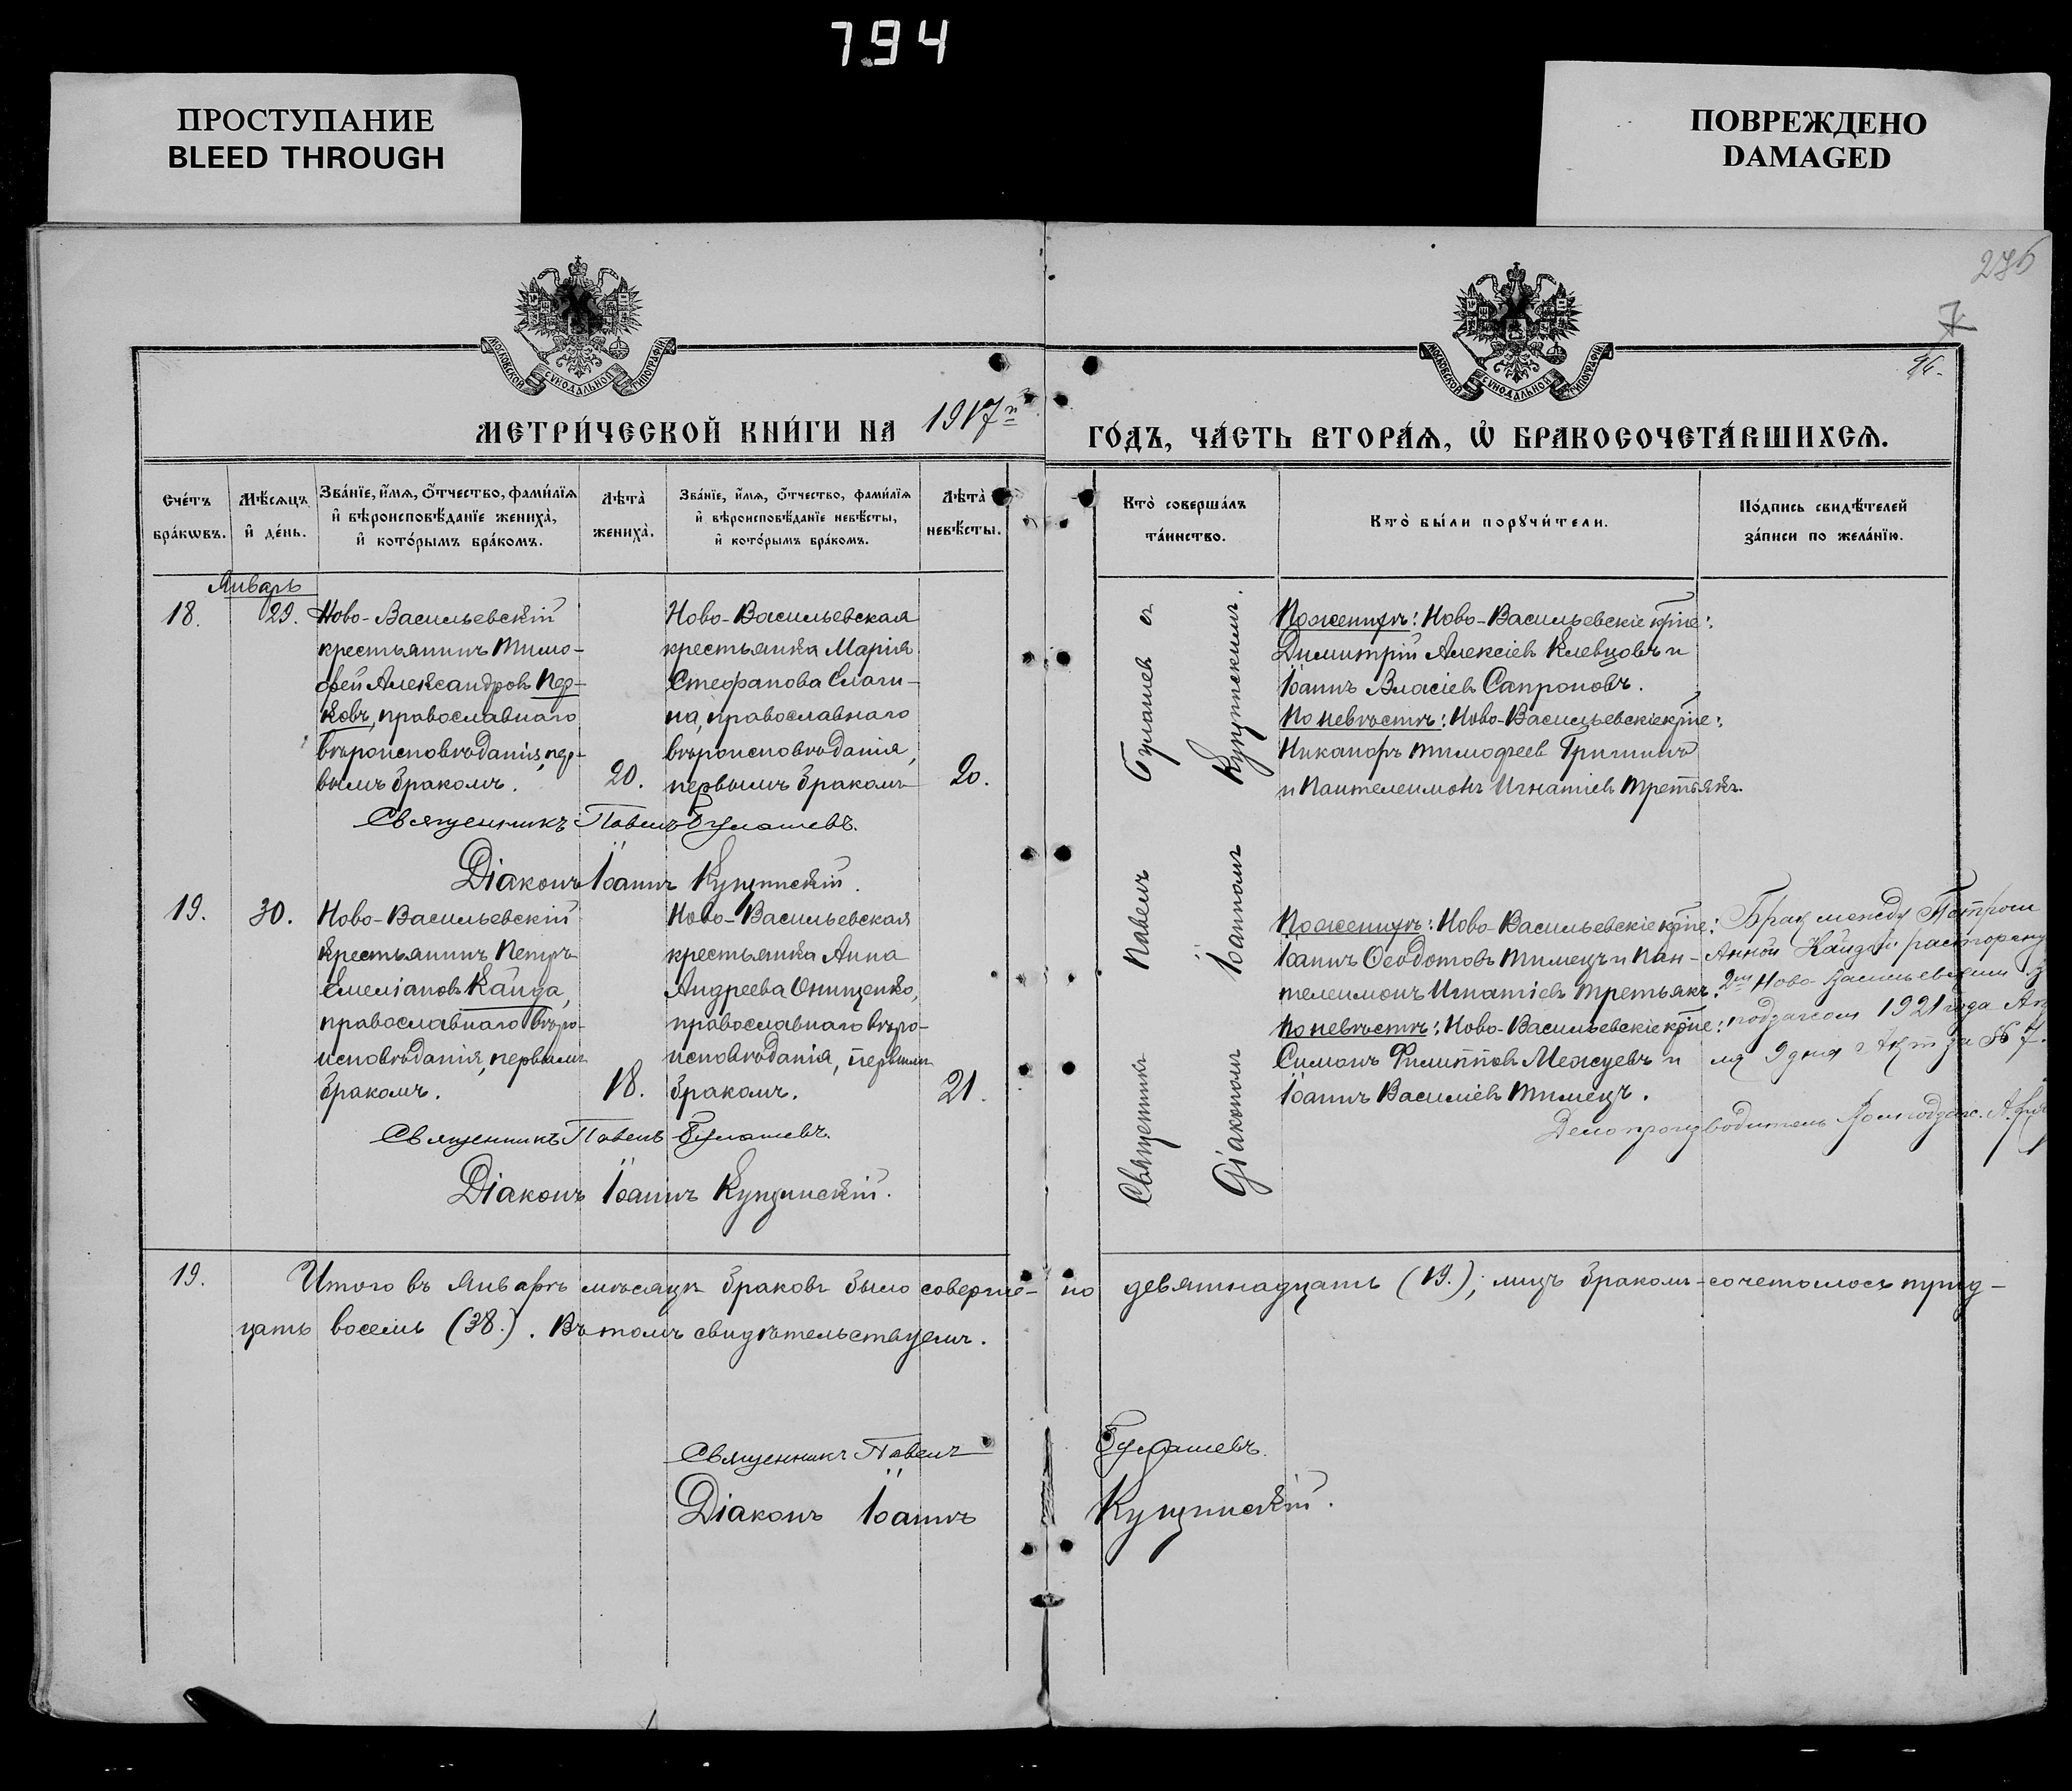 794
ПРОСТУПАНИЕ
BLEED THROUGH
ПОВРЕЖДЕНО
DAMAGED
276
МОСКОВСКОЙ СѴНОДАЛЬНОЙ ТИПОГРАФІИ
МОСКОВСКОЙ СѴНОДАЛЬНОЙ ТИПОГРАФІИ
МЕТРИ́ЧЕСКОЙ КНИ́ГИ НА 1917й
ГО́ДЪ, ЧА́СТЬ ВТОРА́Ѧ, Ѡ҆ БРАКОСОЧЕТА́ВШИХСѦ.
Сче́тъ бра́кѡвъ.
Мѣ́сѧцъ и҆ де́нь.
Зва́нїе, и҆́мѧ, ѻ҆́тчество, фами́лїѧ и҆ вѣроисповѣ́данїе жениха̀, и҆ кото́рымъ бра́комъ.
Лѣта̀ жениха̀.
Зва́нїе, и҆́мѧ, ѻ҆́тчество, фами́лїѧ и҆ вѣроисповѣ́данїе невѣ́сты, и҆ кото́рымъ бра́комъ.
Лѣта̀ невѣ́сты.
Кто̀ соверша́лъ та́инство.
Кто̀ бы́ли порꙋчи́тели.
По́дпись свидѣ́телей за́писи по жела́нїю.
Январь
18.
29.
Ново-Васильевскій
крестьянинъ Тимо-
фей Александровъ Пер-
ковъ, православнаго
вѣроисповѣданія, пер-
вымъ бракомъ.
20.
Ново-Васильевская
крестьянка Марія
Стефанова Слаги-
на, православнаго
вѣроисповѣданія,
первымъ бракомъ
20.
Священникъ Павелъ Булашевъ.
Діаконъ Іоаннъ Кущинскій.
Священникъ Павелъ Булашев съ
Діакономъ Іоанномъ Кущинскимъ.
По женихѣ: Ново-Васильевскіе кр̃не:
Димитрій Алексіевъ Клевцовъ и
Іоаннъ Власіевъ Сапроновъ.
По невѣстѣ: Ново-Васильевскіе кр̃не:
Никаноръ Тимофеев Гришинъ
и Пантелеимонъ Игнатіевъ Третьякъ.
19.
30.
Ново-Васильевскій
крестьянинъ Петръ
Емеліановъ Кайда,
православнаго вѣро-
исповѣданія, первымъ
бракомъ.
18.
Ново-Васильевская
крестьянка Анна
Андреева Онищенко,
православнаго вѣро-
исповѣданія, первымъ
бракомъ.
21.
Священникъ Павелъ Булашевъ.
Діаконъ Іоаннъ Кущинскій.
По женихѣ: Ново-Васильевскіе кр̃не:
Іоаннъ Ѳеодотовъ Тимецъ и Пан-
телеимонъ Игнатіевъ Третьякъ.
По невѣстѣ: Ново-Васильевскіе кр̃не:
Симонъ Филиппов Межуевъ и
Іоаннъ Василіевъ Тимецъ.
Брак между Петром
Анной Кайдой расторгну
2м Ново-Васильевским
подзагсом 1921 года Ап
ля 9 дня Акт за № 7.
Делопроизводитель
19.
Итого въ Январѣ мѣсяцѣ браковъ было соверше-но девятнадцать (19.); лицъ бракомъ-сочеталось трид-
цать восемь (38.). Въ томъ свидѣтельствуемъ.
Священникъ Павелъ Булашевъ.
Діаконъ Іоаннъ Кущинскій.